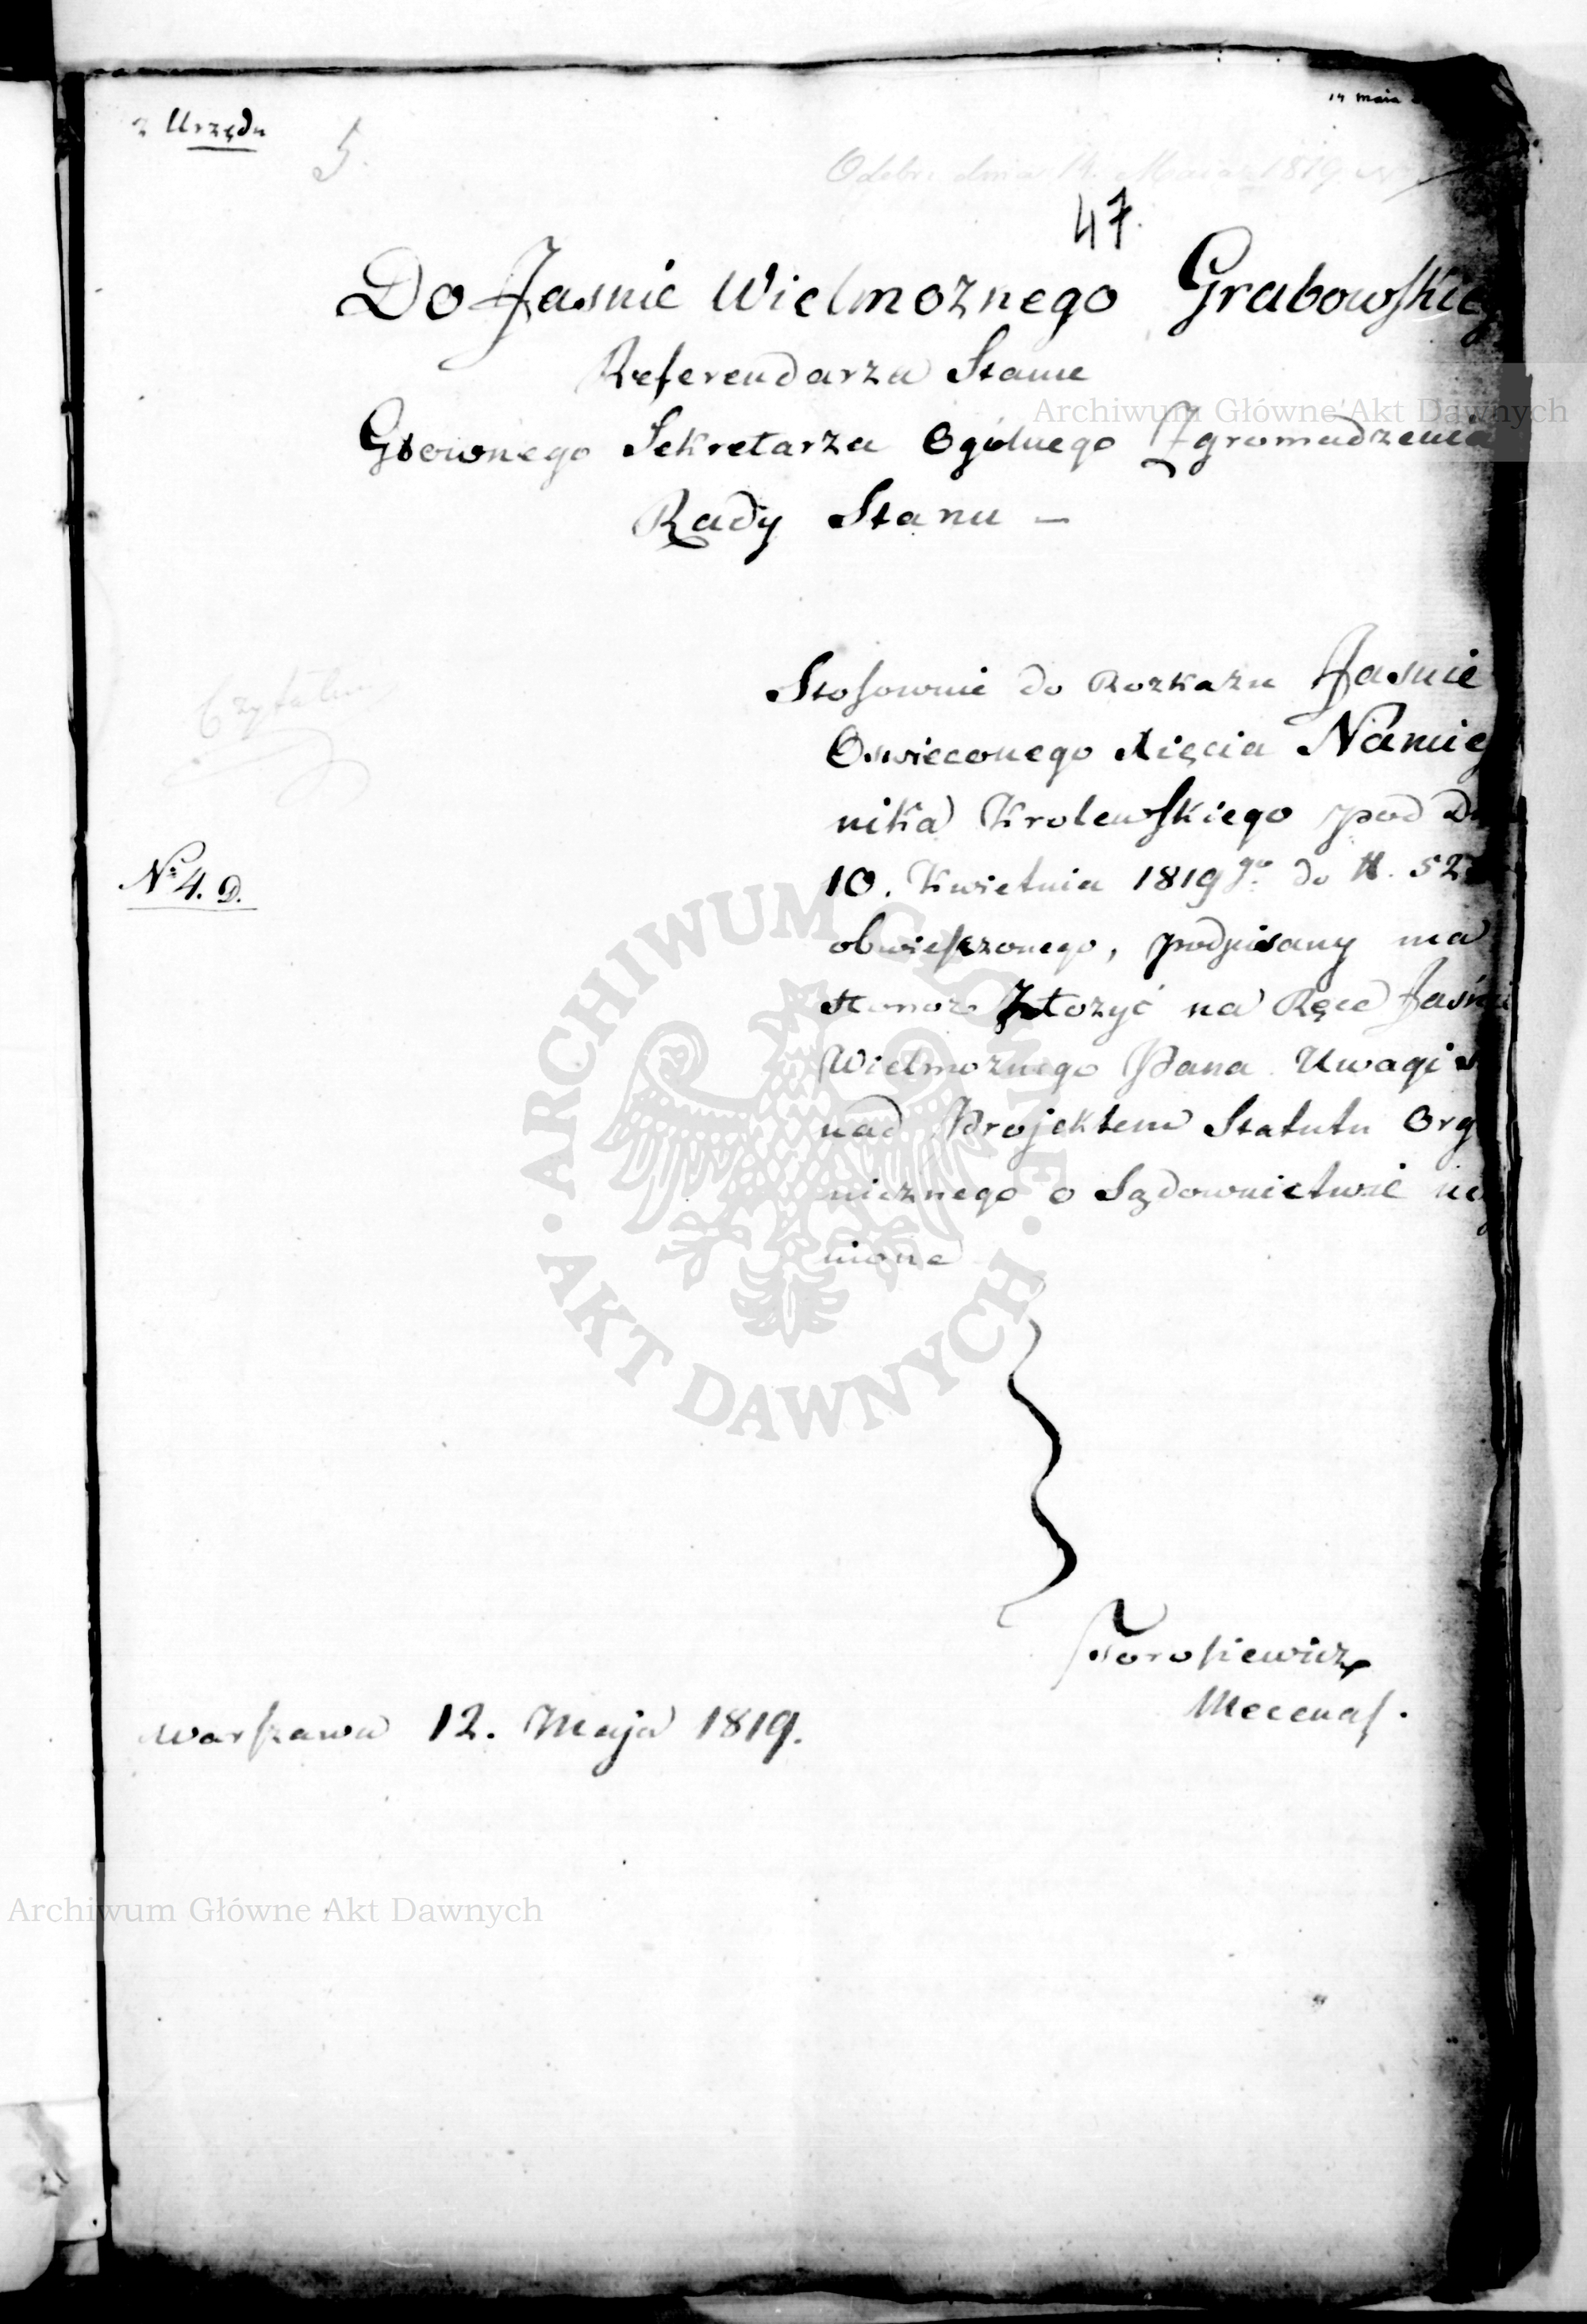 z Urzędu
5.
14 maia
Odebr. dnia 14. Maia 1819. N
47.
Do Jasnie Wielmoznego Grabowskieg
Referendarza Stanu
Głownego Sekretarza Ogólnego Zgromadzenia
Rady Stanu –
Archiwum Główne Akt Dawnych
Stosownie do Rozkazu Jasnie
Oswieconego Xięcia Namie
nika Krolewskiego pod D
N° 4. D.
10. Kwietnia 1819 go do N. 52
obwieszczonego, podpisany ma
Honor Złozyć na Ręce Jaśni
Wielmoznego Pana Uwagi s
nad Projektem Statutu Orga
nicznego o Sądownictwie
nione
ARCHIWUM GŁÓWNE · AKT DAWNYCH ·
Torosiewicz
Mecenas.
Warszawa 12. Maja 1819.
Archiwum Główne Akt Dawnych